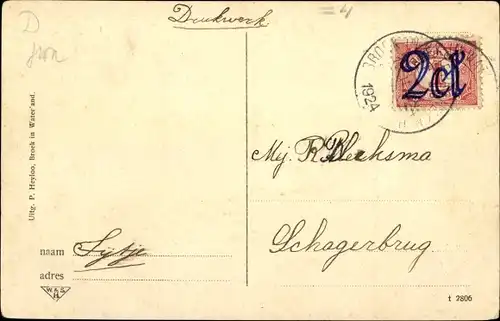 D
Drukwerk
=4
BROEK IN WATERLAND
1924
2ct
Mej. R. Beeksma
Schagerbrug
Uitg. P. Heyloo, Broek in Water'and.
naam Sijtje
adres
W & S
t 2806